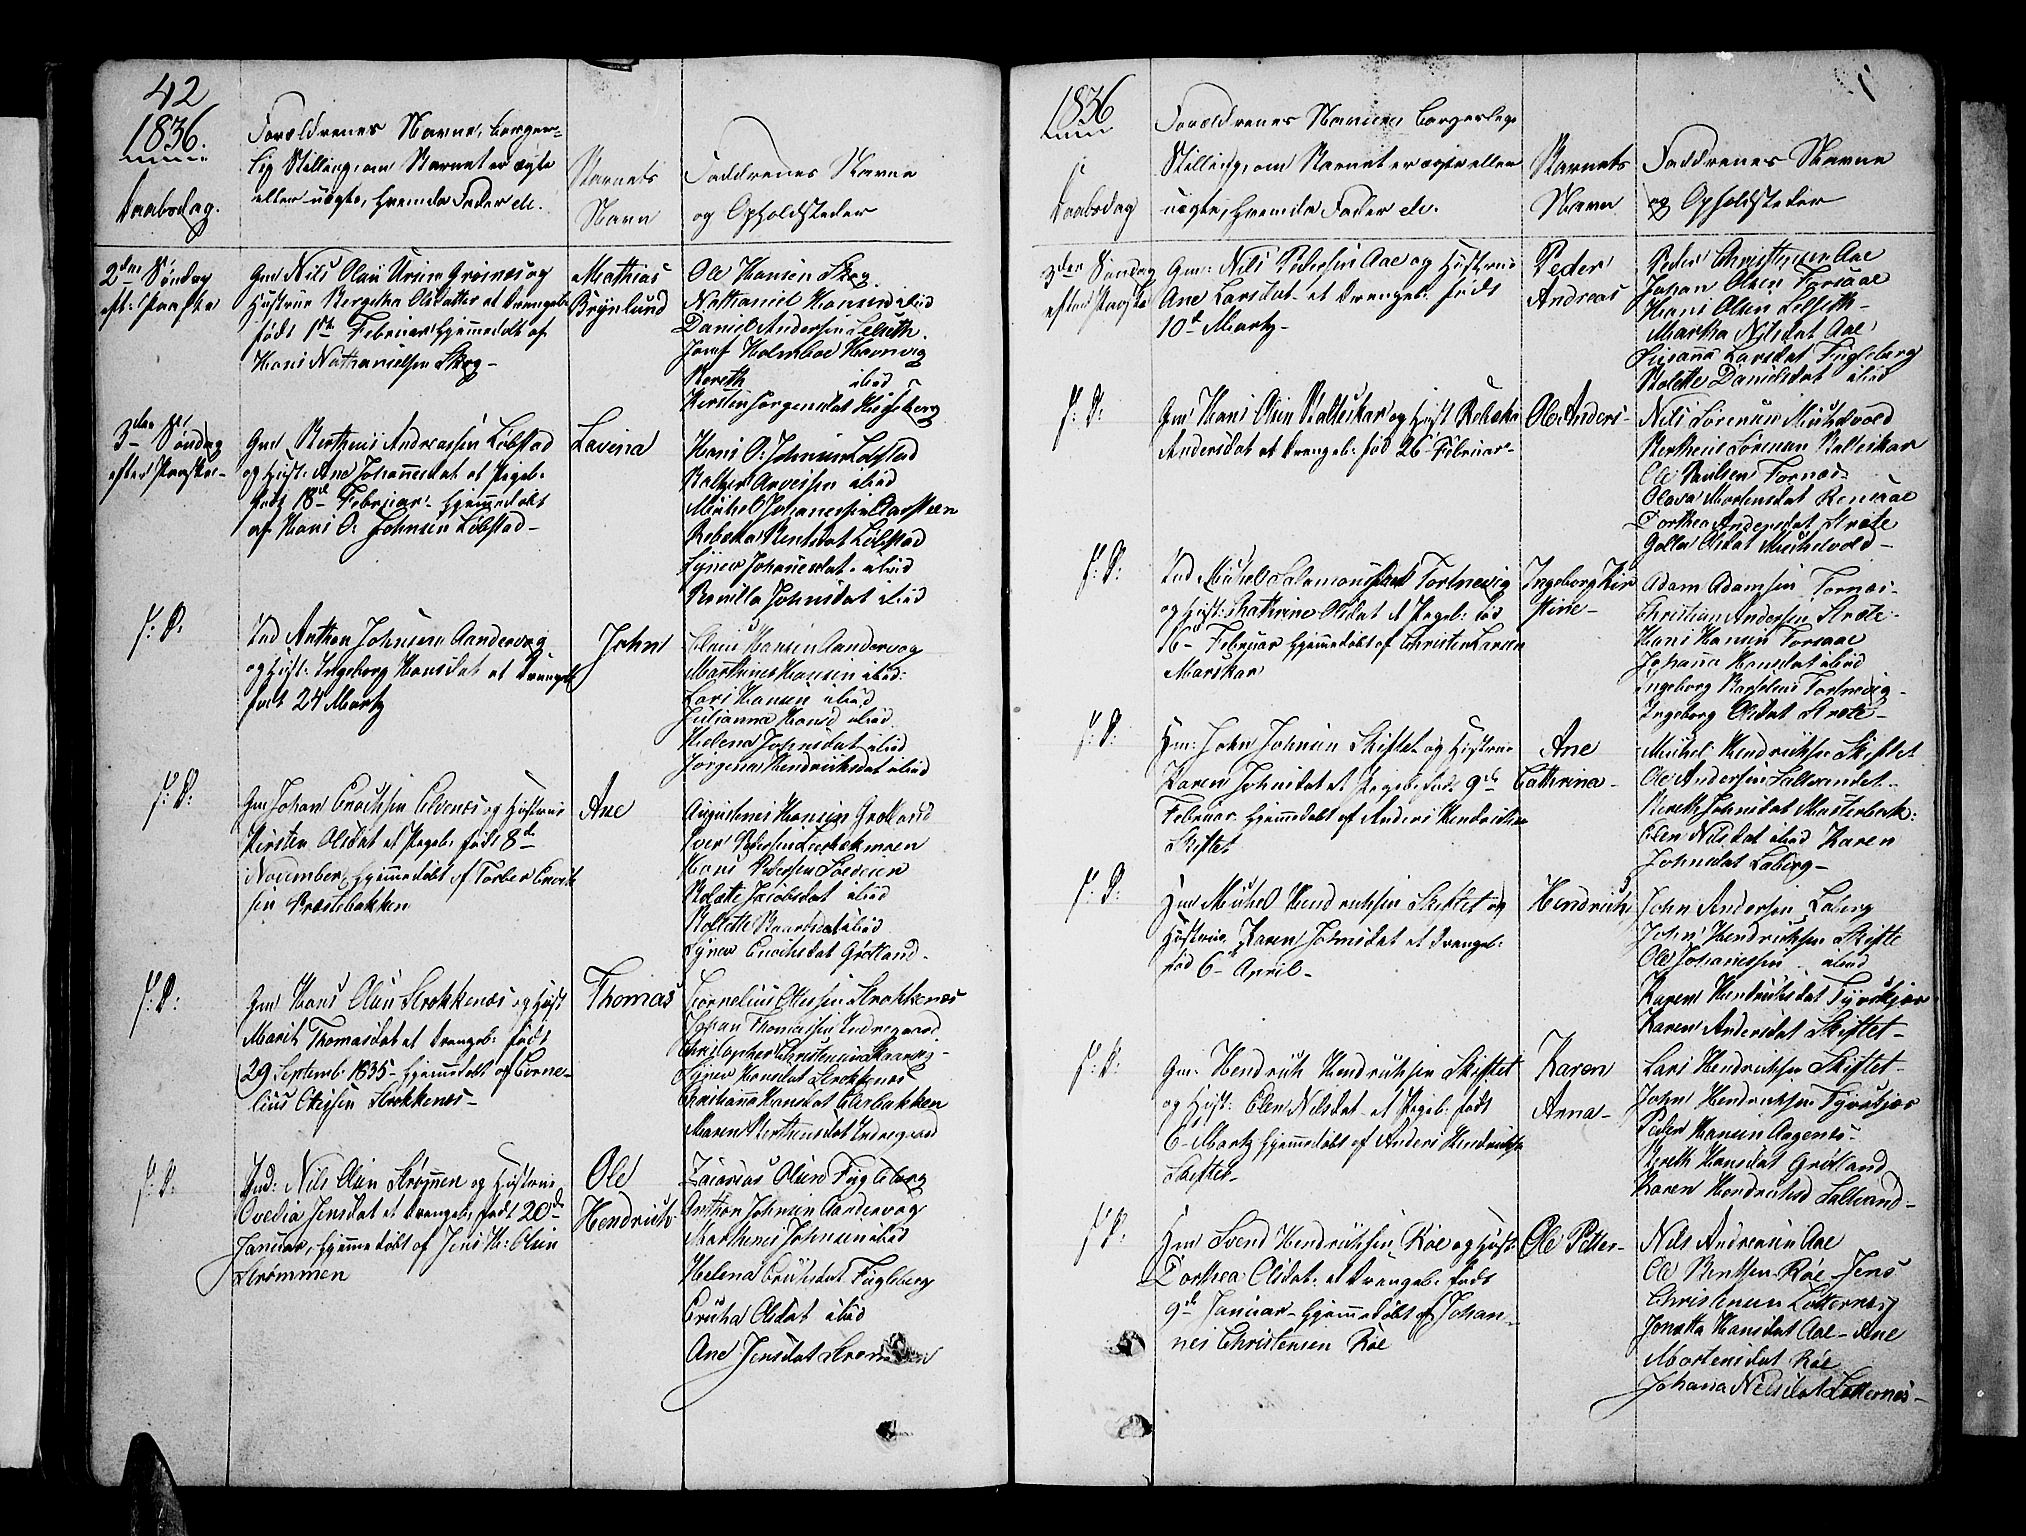 42
1836.
Daabsdag.
Forældrenes Navne, borger-
lig Stilling, om Barnet er ægte
eller uægte, hvemda Fader etc.
Barnets
Navn
Faddrenes Navne
og Opholdsteder
2den Søndag
eft: Paaske
Gm Nils Olsen Grønnæs og
Hustrue Bergitha Olsdatter et Drengeb.
født 1ste Februar hjemmedøbt af
Hans Nathanielsen Skog-
Mathias
Brynlund
Ole Hansen Skog
Nathaniel Hansen ibid
Daniel Andersen
Josef Holmboe Hamvig
Bereth ibid
Kirsten Jørgensdat Hegeberg
3die Søndag
efter Paaske-
Gm Bertheus Andreassen Løbstad
og Hust: Ane Johannesdat et Pigeb.
født 18de Februar. hjemmedøbt
af Hans O: Johnsen Løbstad-
Lavina
Hans O: Johnsen Løbstad
Balzer Arvesen ibid
Michel Johannesen
Rebekka Bentsdat Løbstad
Zyner Johannesdat. ibid
Pernilla Johnsdat ibid
f: D:
Ind Anthon Johnsen Aandervog
og Hust: Ingeborg Hansdat et Drengeb
født 24 Martz
John
Claus Hansen Aandervog
Marthines Hansen ibid:
Lars Hansen ibid
Julianna Hansd ibid
Helena Johnsdat ibid
Jørgena Hendriksdat ibid
f: D:
Gm Johan Enochsen Elvenes og Hustrue
Kirsten Olsdat et Pigeb. født 8de
November, hjemmedøbt af Torber Enoch
sen Præstebakken
Ane
Augustinus Hansen Grøtland
Iver Pedersen Lorbakmoen
Hans Pedersen Soeveien
Beleta Jacobsdat ibid
Bolette Baardsdat ibid
Zyner Enochsdat Grøtland-
f: D:
Gm Hans Olsen Strokkenæs og Hust
Marit Thomasdat et Drengeb: født
29 Septemb: 1835- hjemmedøbt af Corne-
lius Otesen Strokkenes-
Thomas
Cornelius Otesen Strokkenes
Johan Thomassen Indregaard
Christopher Christensen
Zyner Hansdat Strokkenes
Christianna Hansdat Elvebakken
Maren Berthensdat Indregaard
f: D:
Ind: Nils Olsen Strømmen og Hustrue
Ovedia Jensdat et Drengeb. født 20de
Januar, hjemmedøbt af Jens H: Olsen
Strømmen
Ole
Hendrich-
Zacarias Olsen Fugleberg
Anthon Johnsen Aandervog
Marthines Johnsen ibid
Helena Ericksdat Fugleberg
Ericka Olsdat ibid
Ane Jensdat Strømmen
1836
Daabsdag
Forældrenes Navne borgerlege
Stilling, om Barnet er ægte eller
uægte, hvemda Fader etc.
Barnets
Navn
Faddrenes Navne
og Opholdsteder
3die Søndag
efter Paaske
Gm: Nils Pedersen Aae og Hustrue
Ane Larsdat- et Drengeb: født
10de Martz-
Peder
Andreas
Peder Christensen Aae
Johan Olsen Forsaae
Hans Olsen Selseth-
Martha Nilsdat Aae
Susanna Larsdat Fugleberg
Bolette Danielsdat ibid
f: D:
Gm Hans Olsen Balteskar og Hust Rebekka
Andersdat et Drengeb: fød 26 Februar-
Ole Anders-
Nils Sørensen Mickelvold
Bertheus Sørensen Balteskar
Ole Paulsen Fornæs-
Olava Mortensdat Rensaae
Dorthea Andersdat Kræte
Golla Olsdat Mickelvold-
f: D:
Ind Michel Salomonsen Fortnevig
og Hust: Cathrine Olsdat et Pigeb: fød
16- Februar hjemmedøbt af Christen Larsen
Marskar
Ingeborg Kir
stine-
Adam Adamsen Fornæs-
Christian Andersen Kræte-
Hans Hansen Forsaae
Johanna Hansdat ibid
Ingeborg Fortnevig-
Ingeborg Olsdat Kræte-
f: D:
Hm: John Johnsen Skiftet og Hustrue
Karen Johnsdat et Pigeb: født 9de
Februar hjemmedøbt af Anders Hendriksen
Skiftet
Ane
Cathrina-
Michel Hendriksen Skiftet
Ole Andersen Saltvandet-
Bereth Johnsdat Mosterbæk:
Elen Nilsdat ibid Karen
Johnsdat Laberg-
f: D:
Hm Michel Hendriksen Skiftet og
Hustrue Karen Johnsdat et Drengeb:
fød 6te April-
Hendrick
John Andersen Laberg
John Hendriksen Skifte
Ole Johannesen ibid
Karen Hendriksdat Fyrskjær
Karen Andersdat Skiftet-
f: D:
Gm: Hendrick Hendriksen Skiftet
og Hust: Elen Nilsdat- et Pigeb: født
6- Martz hjemmedøbt af Anders Hendriksen
Skiftet-
Karen
Anna-
Lars Hendriksen Skiftet-
John Hendriksen Fyrskjær
Peder Hansen Aagenes-
Bereth Hansdat Grøtland
Karen Hendriksd Saltvand-
f: D:
Hm Svend Hendriksen Røe og Hust:
Dorthea Olsdat: et Drengeb: født
9de Januar- hjemmedøbt af Johan-
nes Christensen Røe
Ole Petter-
Nils Andreasen Aae
Ole Bentsen Røe- Jens
Christensen Løtternes
Jonetta Hansdat Aae- Ane
Mortensdat Røe
Johana Nilsdat Løtternes-